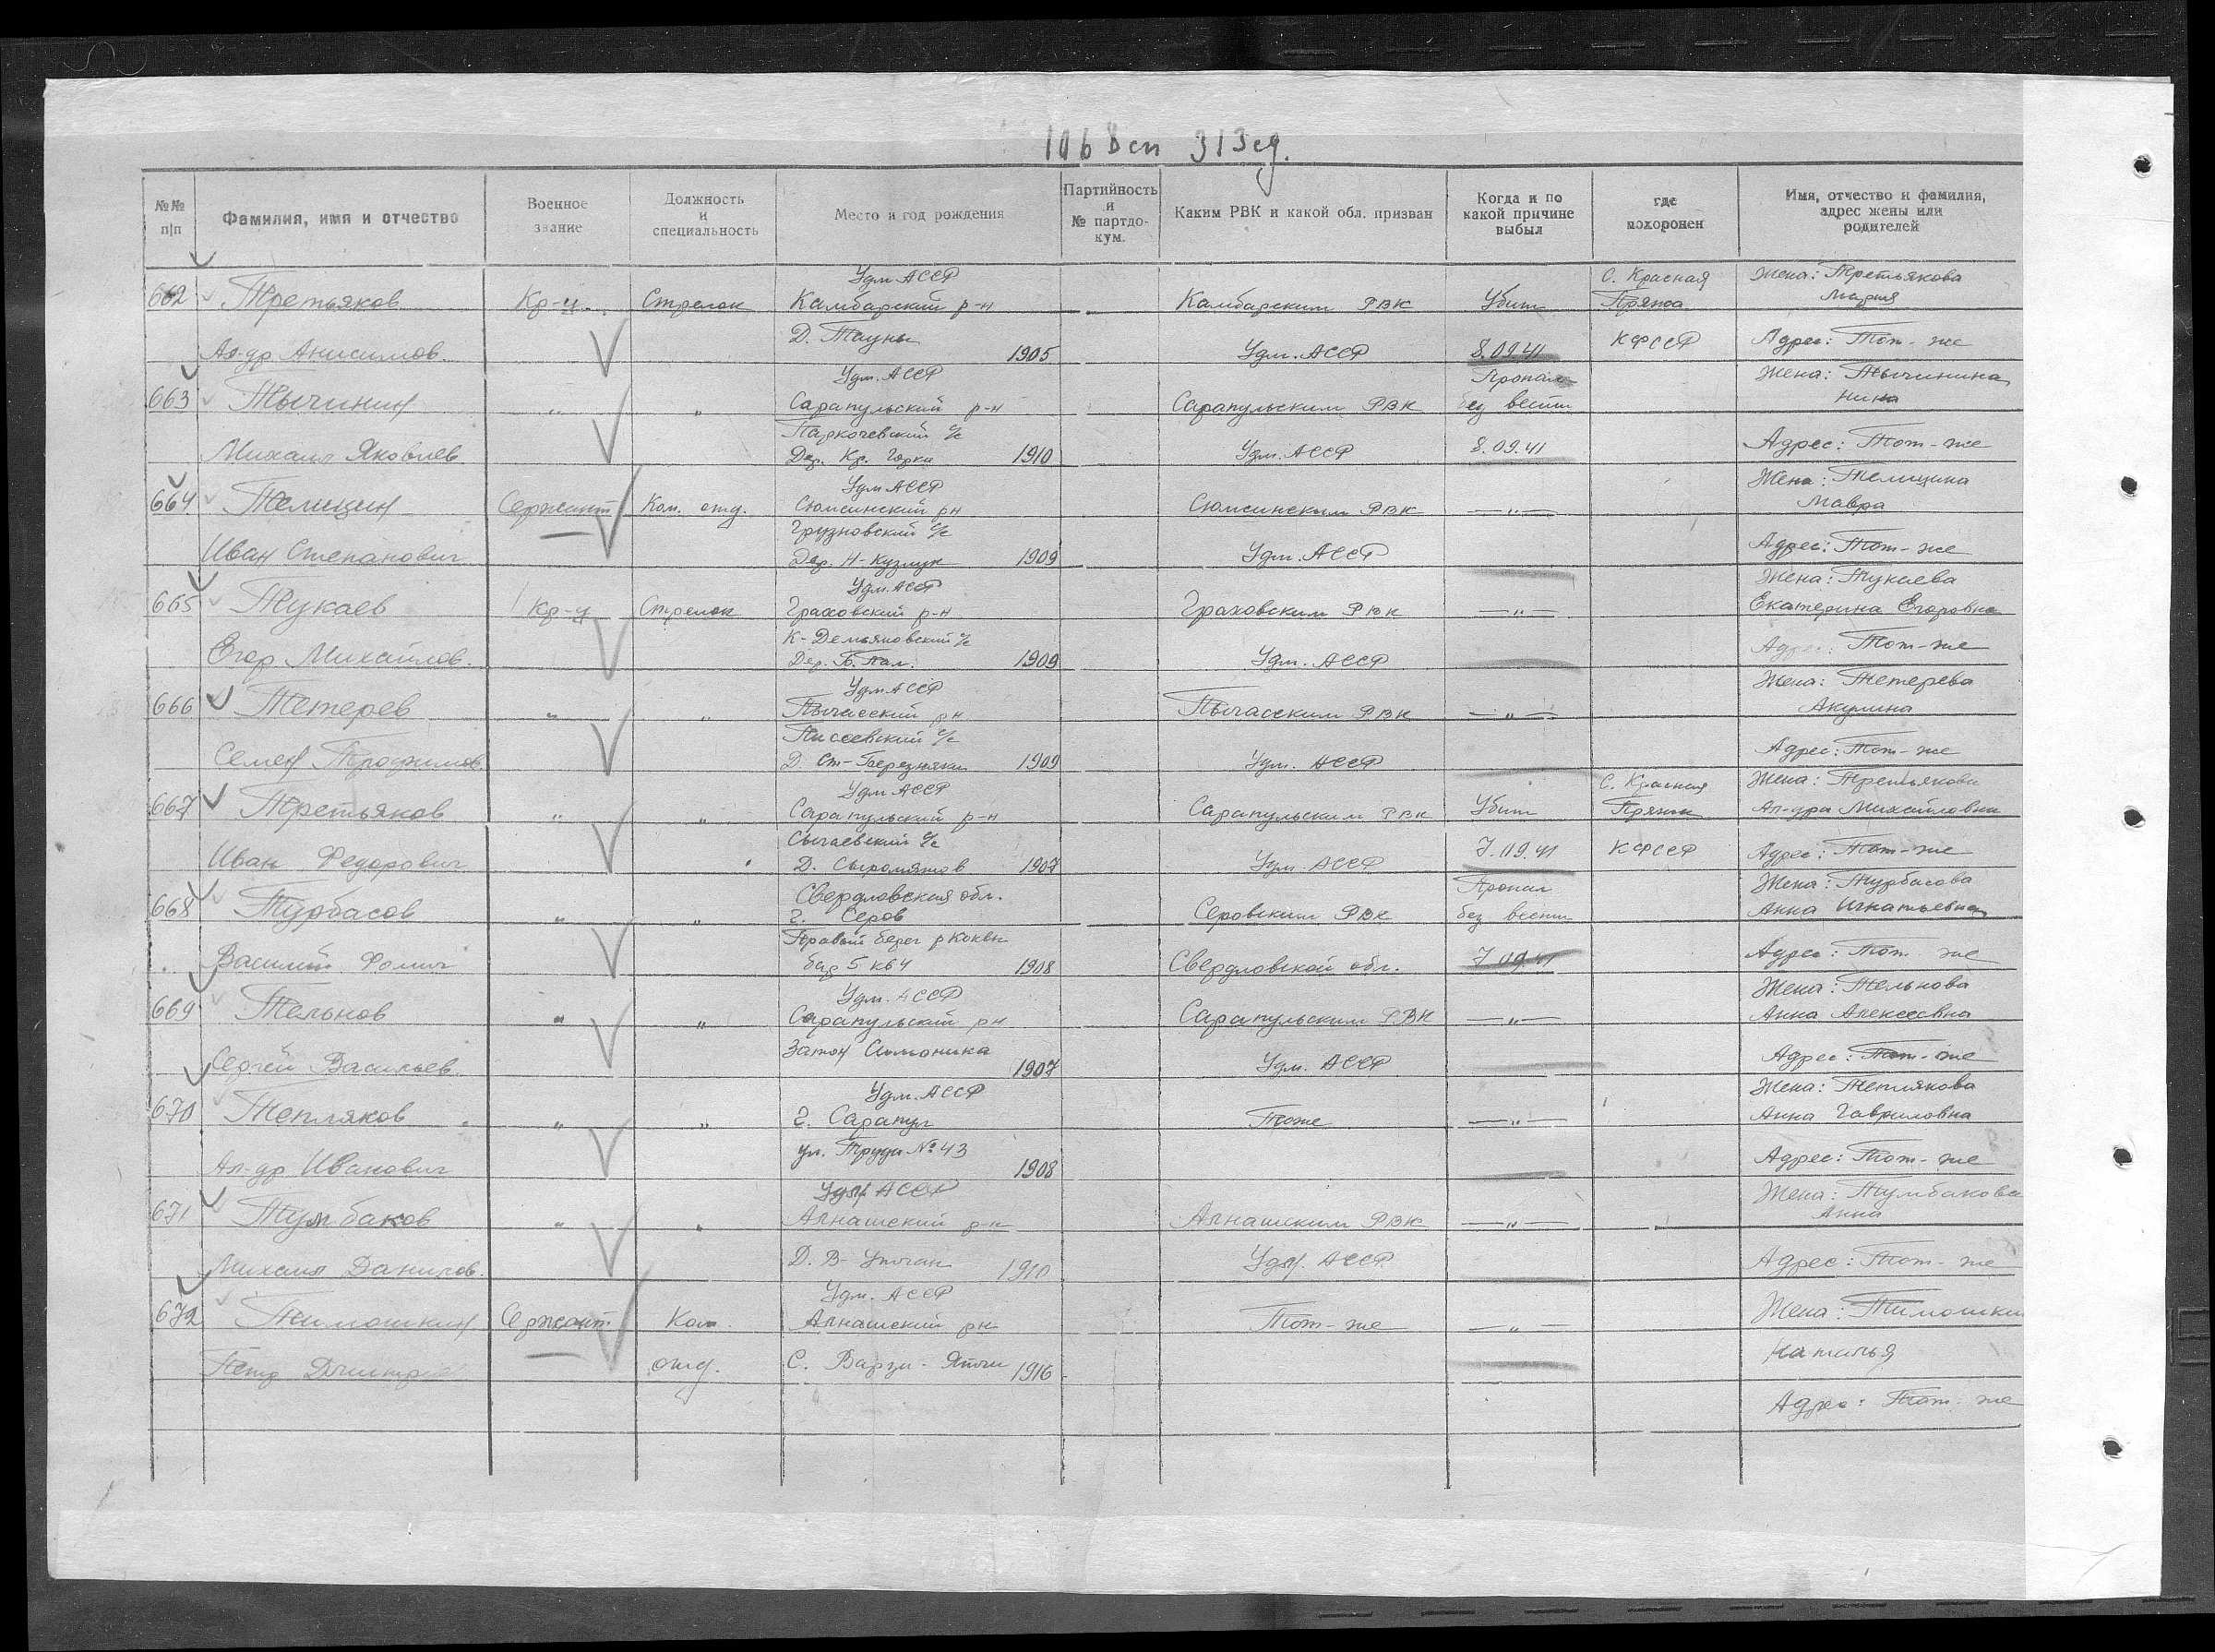 1068 сп 313 сд.
№№ п|п
Фамилия, имя и отчество
Военное звание
Должность и специальность
Место и год рождения
Партийность и № партдокум.
Каким РВК и какой обл. призван
Когда и по какой причине выбыл
где похоронен
Имя, отчество и фамилия, адрес жены или родителей
Удм АССР С. Красная Жена: Третьякова
662 Третьяков Кр-ц Стрелок Камбарский р-н Камбарским РВК Убит Пряжа Мария
Ал-др Анисимов. Д. 1905 Удм. АССР 8.09.41 КФССР Адрес: Тот-же
Удм. АССР Пропал Жена: Тычинина
663 Тычинин " " Сарапульский р-н Сарапульским РВК без вести Нина
с/с
Михаил Яковлев Дер. Кр. Горка 1910 Удм. АССР 8.09.41 Адрес: Тот-же
Удм АССР Жена: Телицина
664 Телицин Сержант Ком. отд. Сюмсинский рн Сюмсинским РВК —"— Мавра
с/с
Иван Степанович Дер. 1909 Удм. АССР Адрес: Тот-же
Удм. АССР Жена: Тукаева
665 Тукаев Кр-ц Стрелок Граховский р-н Граховским РВК —"— Екатерина Егоровна
К-Демьяновский с/с
Егор Михайлов. Дер. Б. 1909 Удм. АССР Адрес: Тот-же
Удм АССР Жена: Тетерева
666 Тетерев " " Пычасский рн Пычасским РВК —"— Акулина
Писеевский с/с
Семен Трофимов Д. Ст-Березняки 1909 Удм. АССР Адрес: Тот-же
Удм АССР С. Красная Жена: Третьякова
667 Третьяков " " Сарапульский р-н Сарапульским РВК Убит Пряжа Ал-дра Михайловна
с/с
Иван Федорович Д. 1907 Удм. АССР 7.09.41 КФССР Адрес: Тот-же
Свердловская обл. Пропал Жена: Турбасова
668 Турбасов " " г. Серов Серовским РВК без вести Анна Игнатьевна
Правый берег р Каквы
Василий Фомич бар 5 кв 4 1908 Свердловской обл. 7.09.41 Адрес: Тот же
Удм. АССР Жена: Тельнова
669 Тельнов " " Сарапульский рн Сарапульским РВК —"— Анна Алексеевна
Сергей Васильев. Затон Симоника 1907 Удм. АССР Адрес: Тот-же
Удм. АССР Жена: Теплякова
670 Тепляков " " г. Сарапул Тоже —"— Анна Гавриловна
Ал-др Иванович ул. Труда № 43 1908 Адрес: Тот-же
Удм АССР Жена: Тумбакова
671 Тумбаков " " Алнашский р-н Алнашским РВК —"— Анна
Михаил Данилов. Д. В-Утчан 1910 Удм. АССР Адрес: Тот-же
Удм. АССР
672 Тимошкин Сержант Ком. Алнашский рн Тот-же —"— Жена: Тимошки
Петр отд. С. Варзи-Ятчи 1916 Наталья
Адрес: Тот-же